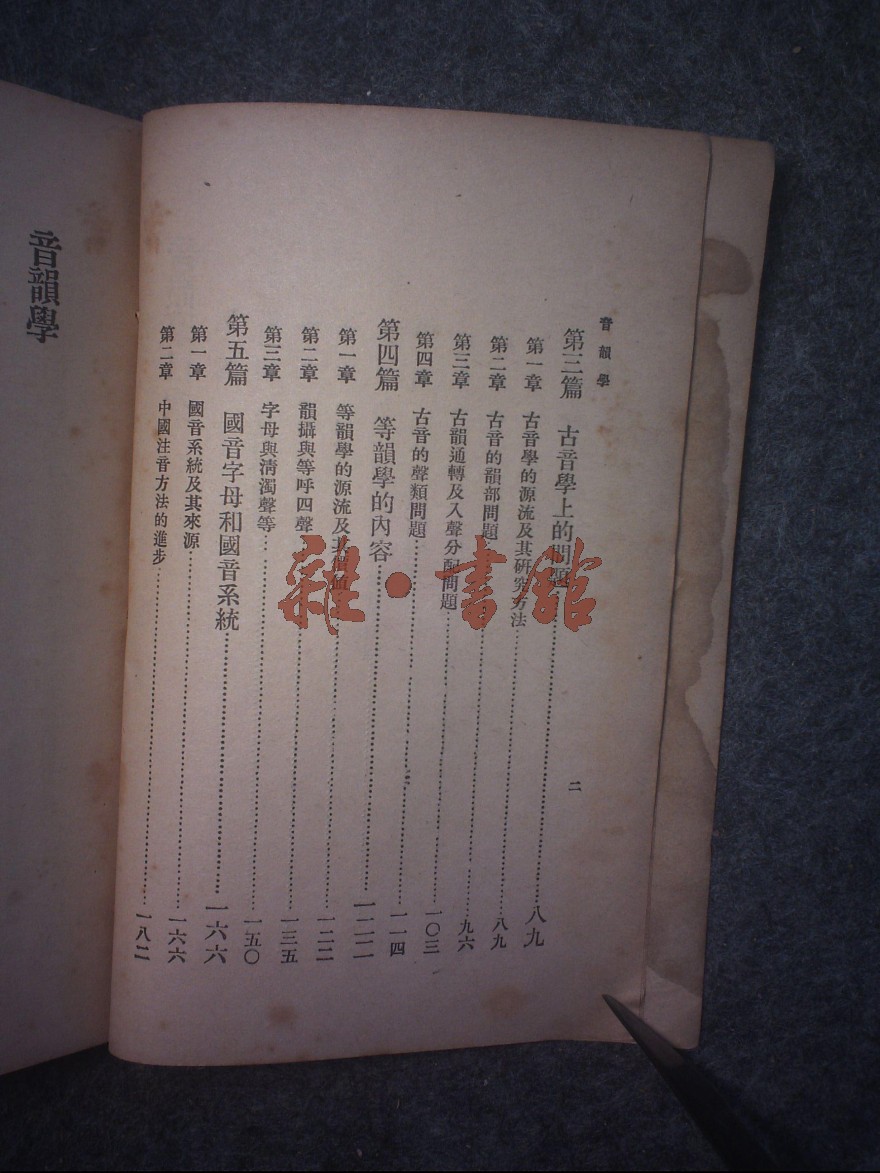 音韻學
二
第三篇 古音學上的問題……八九
第一章 古音學的源流及其研究方法……八九
第二章 古音的韻部問題……九六
第三章 古韻通轉及入聲分配問題……一〇三
第四章 古音的聲類問題……一一四
第四篇 等韻學的內容……一二二
第一章 等韻學的源流及其價值……一二二
第二章 韻攝與等呼四聲……一三五
第三章 字母與清濁聲等……一五〇
第五篇 國音字母和國音系統……一六六
第一章 國音系統及其來源……一六六
第二章 中國注音方法的進步……一八二
音韻學
雜·書館